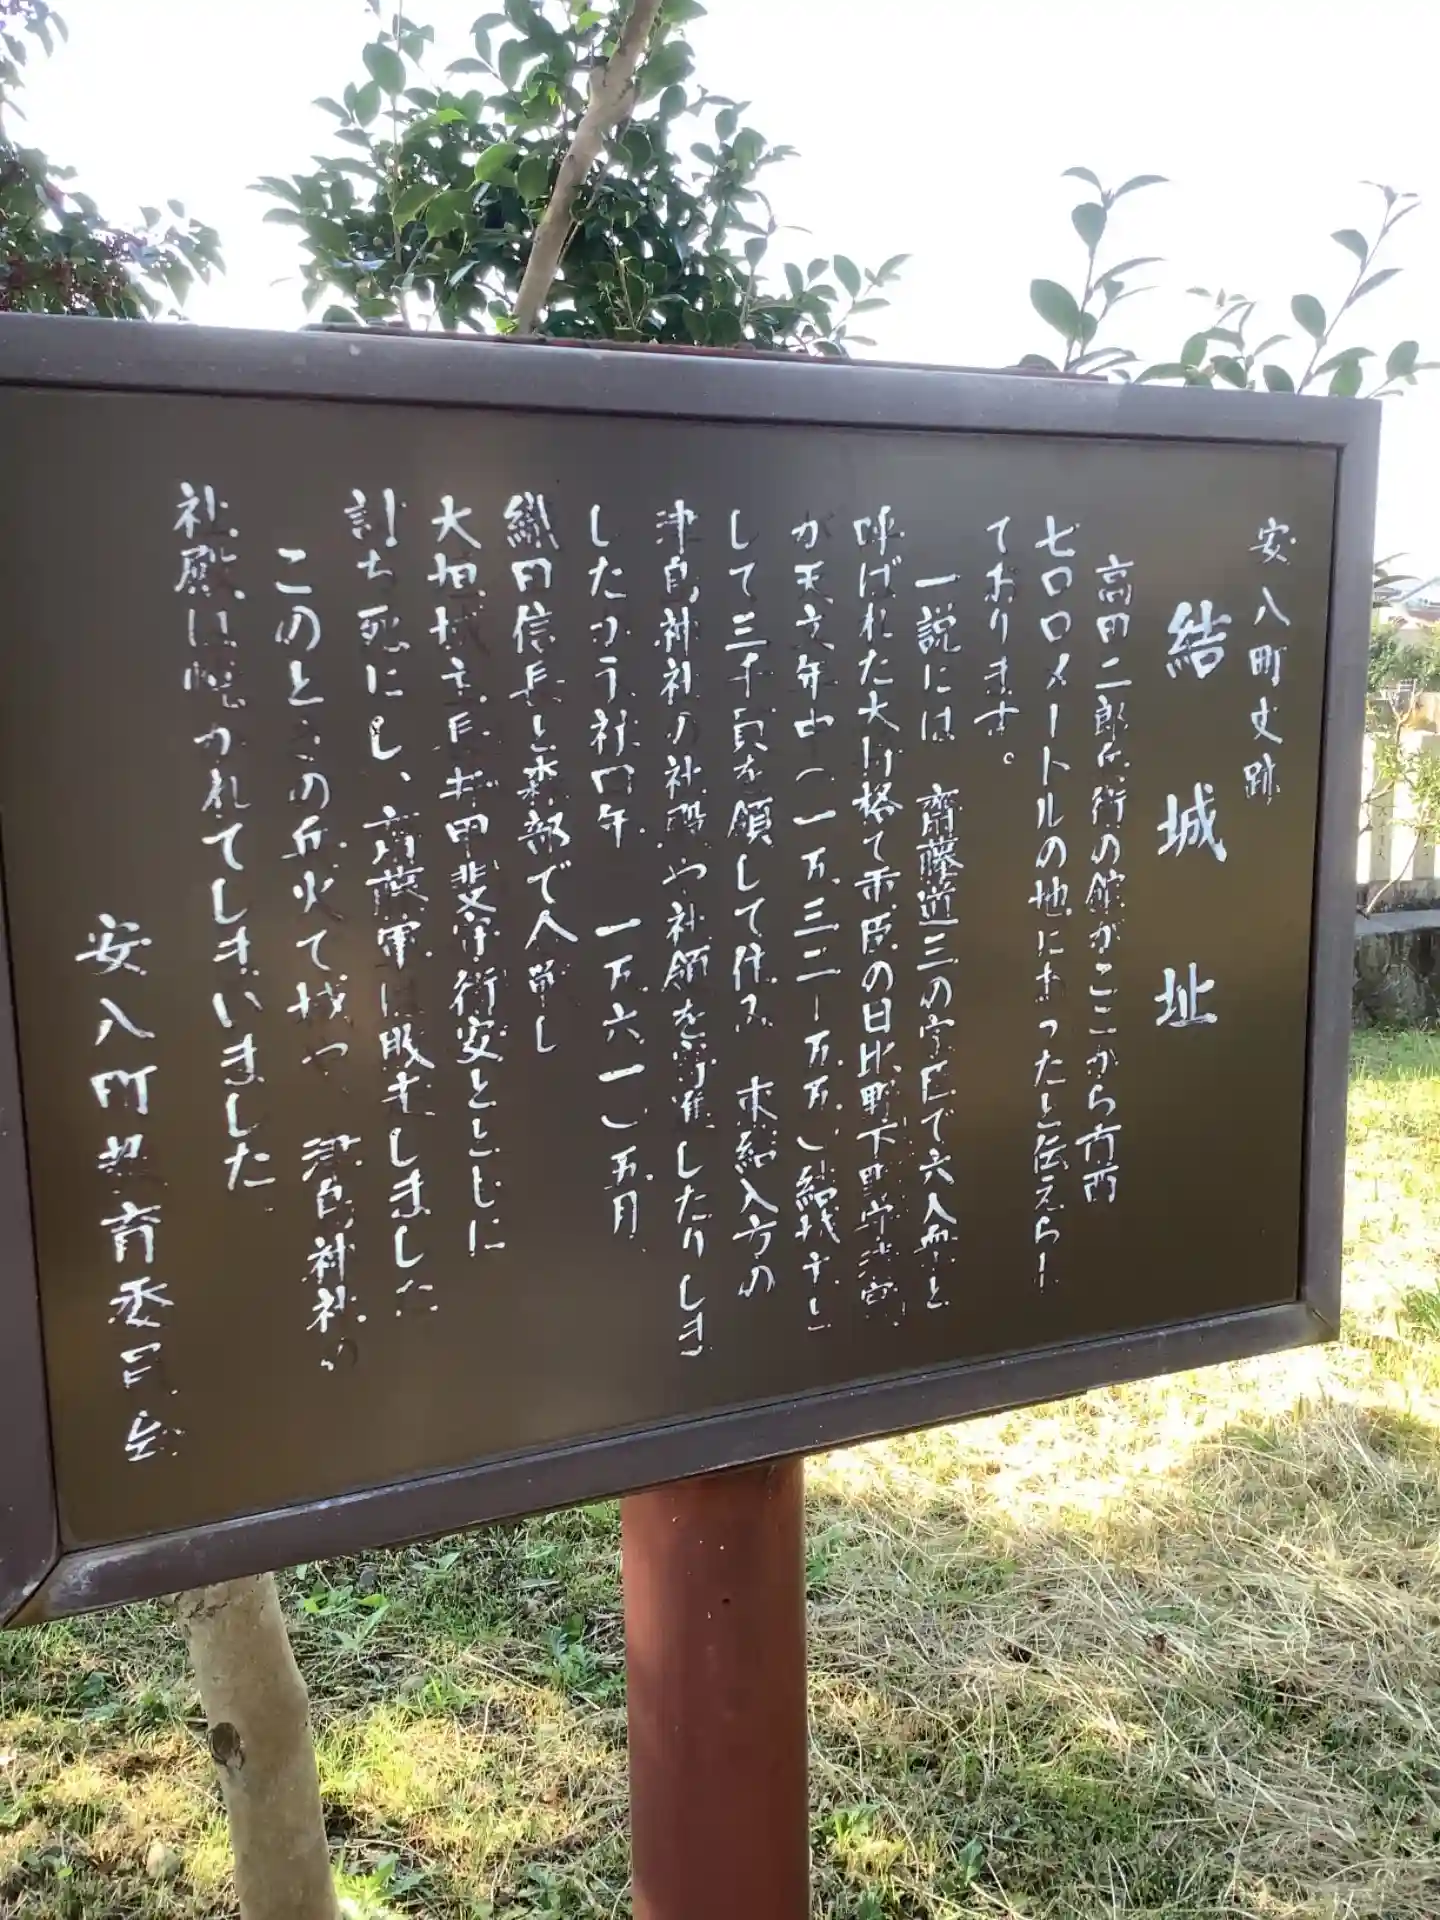 安八町史跡
結城址
高田二郎兵衛の館がここから南西
七〇〇メートルの地にあったと伝えられ
ております。
一説には 齋藤道三の家臣で六人衆と
呼ばれた大将格で重臣の日比野下野守清実
が天文年中(一五三二〜一五五五)結城主と
して三千貫を領して住み 末結入方の
津島神社の社殿や社領を寄進したりしま
したが 社 午 一五六一)五月
織田信長と森部で合戦し
大垣城主長井甲斐守衛安とともに
討ち死にし、斎藤軍は敗走しました
このときの兵火で城や、津島神社の
社殿は焼かれてしまいました
安八町教育委員会